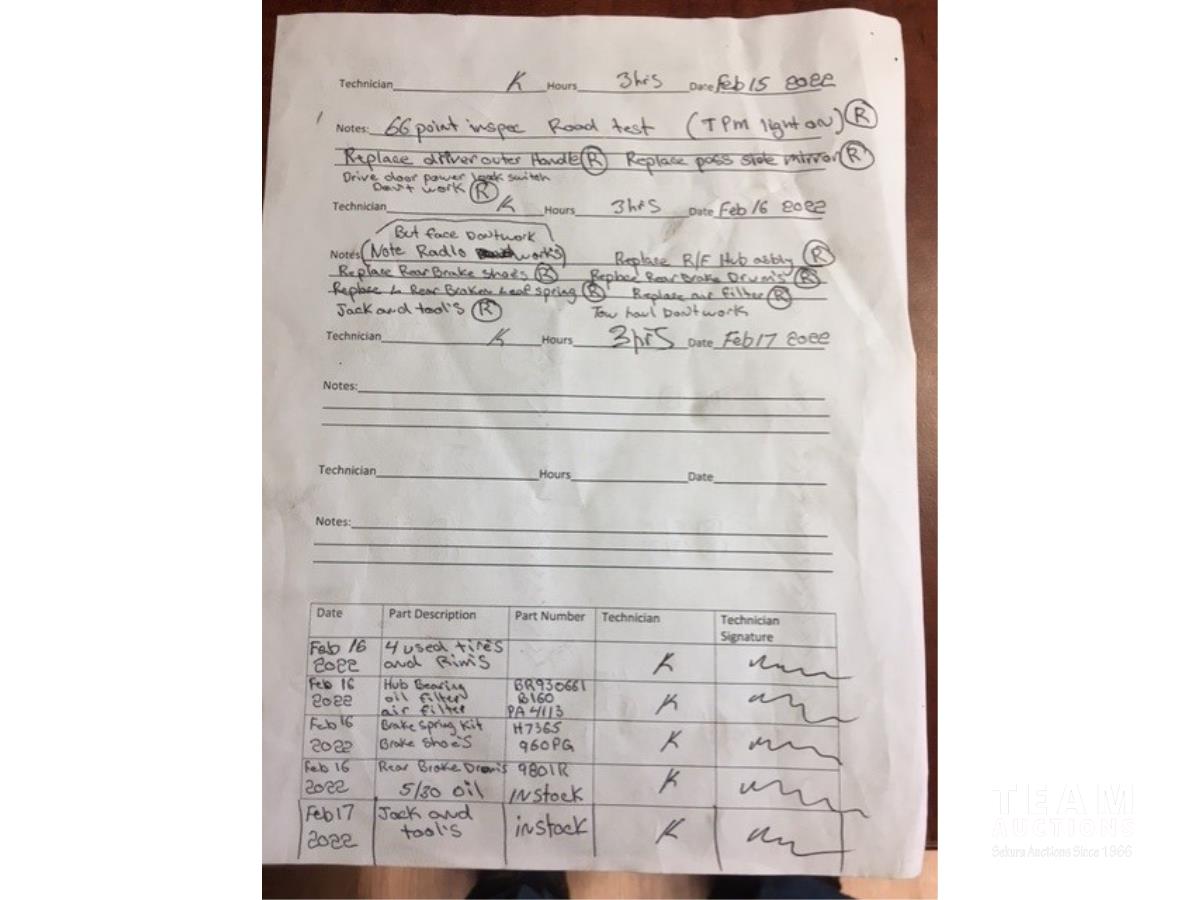 Technician K Hours 3hrs Date Feb 15 2022
Notes: 66 point inspec Road test (TPM light on) R
Replace driver outer Handle R Replace pass side mirror R
Drive door power lock switch
Don't work R
Technician K Hours 3hrs Date Feb 16 2022
But face Dont work
Notes (Note Radio works) Replace R/F Hub asbly R
Replace Rear Brake shoes R Replace Rear Brake Drum's R
Replace Rear Brake spring R Replace air filter R
Jack and tool's R Tow haul Dont work
Technician K Hours 3hrs Date Feb 17 2022
Notes:
Technician Hours Date
Notes:
Date Part Description Part Number Technician Technician Signature
Feb 16 2022 4 used tire's and Rim's K
Feb 16 2022 Hub Bearing BR930661 K
oil filter B160
air filter PA4113
Feb 16 2022 Brake Spring Kit H7365 K
Brake shoe's 960PG
Feb 16 2022 Rear Brake Drum's 9801R K
5/30 oil INstock
Feb 17 2022 Jack and tool's instock K
TEAM
AUCTIONS
Sekura Auctions Since 1966